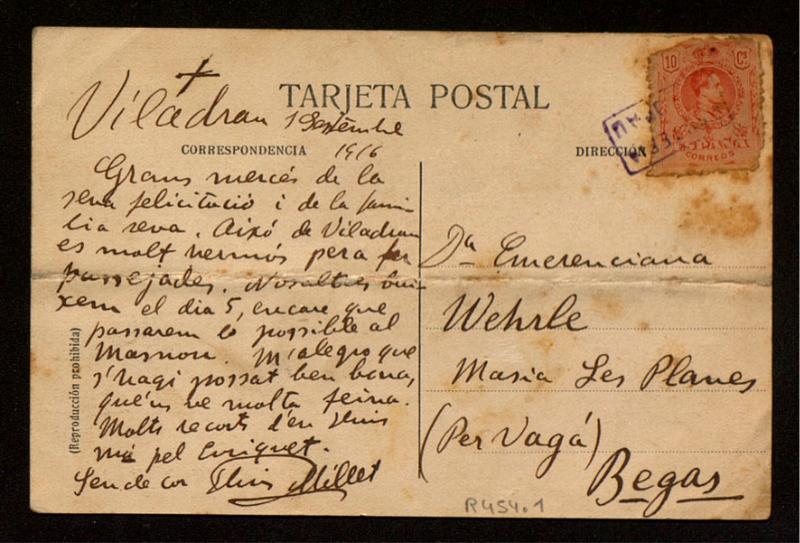 +
Viladrau 1 Septembre
1916
TARJETA POSTAL
CORRESPONDENCIA
DIRECCIÓN
Grans mercés de la
seva felicitació i de la fami-
lia seva. Aixó de Viladrau
es molt hermós pera fer
passejades. Nosaltres bai-
xem el dia 5, encare que
passarem lo possible al
Masnou. M'alegro que
s'hagi possat ben bona,
qué'ns ve molta feina.
Molts recorts d'en Lluis
pel Enriquet.
Seu de cor Lluis Millet
(Reproducción prohibida)
10 Cs
CORREOS
Da Emerenciana
Wehrle
Masia Les Planes
(Per Vagá)
Begas
R454.1